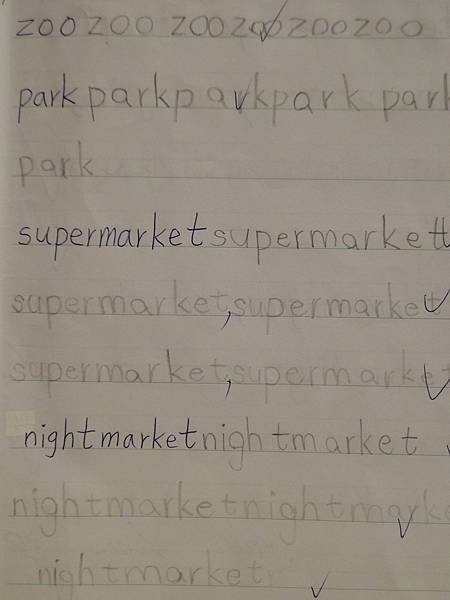 zoo zoo zoo zoo zoo zoo
park park park park park
park
supermarket supermarket
supermarket, supermarket
supermarket, supermarket
nightmarket nightmarket
nightmarket nightmarke
nightmarket